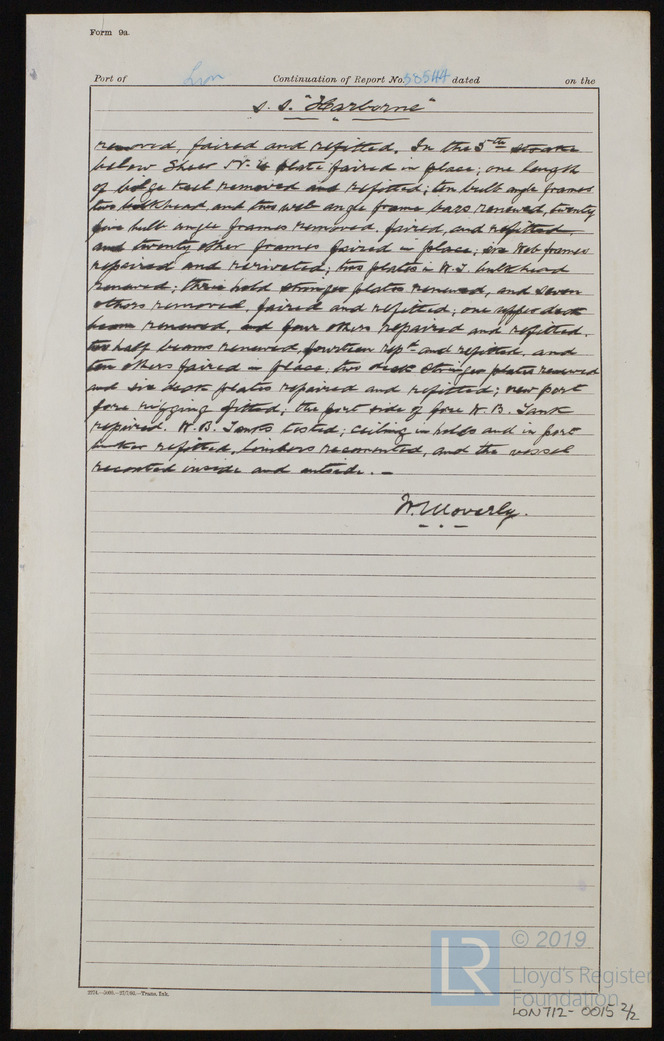 Form 9a.
Port of Lon Continuation of Report No. 58544 dated on the
S. S. "Harborne"
removed, faired and refitted. In the 5th strake
below Sheer Nº 4 plate faired in place; one length
of bilge keel removed and refitted; ten bulb angle frames
two bulkhead and two web angle frame bars renewed, twenty
five bulb angle frames removed, faired, and refitted,
and twenty other frames faired in place; six Web frames
repaired and reriveted; two plates in W.T. bulkhead
renewed; three hold stringer plates renewed, and seven
others removed, faired and refitted; one upper deck
beam renewed, and four others repaired and refitted.
two half beams renewed, fourteen repd and refitted, and
ten others faired in place; two deck stringer plates renewed
and six deck plates repaired and refitted; new port
fore rigging fitted; the port side of fore W. B. Tank
repaired. W. B. Tanks tested; ceiling in holds and in port
bunker refitted, limbers recemented, and the vessel
recoated inside and outside. -
W. Moverly.
2274.-5000.-27/7/06.-Trans. Ink.
© 2019
LR
Lloyd's Register
Foundation
LON712-0015 2/2